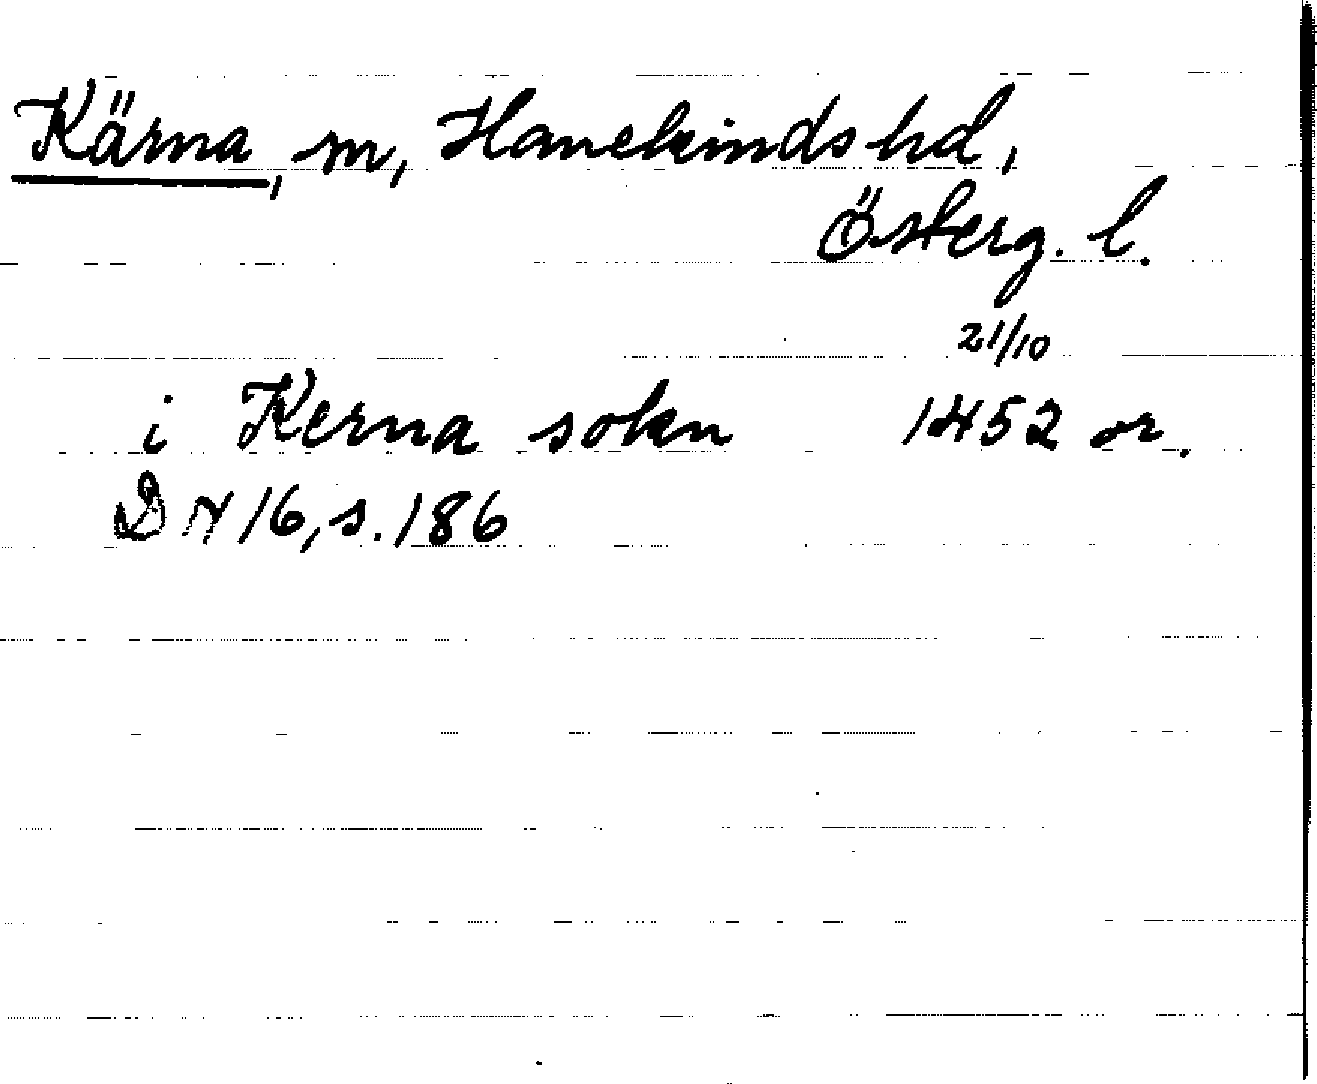 Kärna, sn, Hanekinds hd,
Österg. l.
21/10
i Kerna sokn 1452 or.
DN 16, s. 186